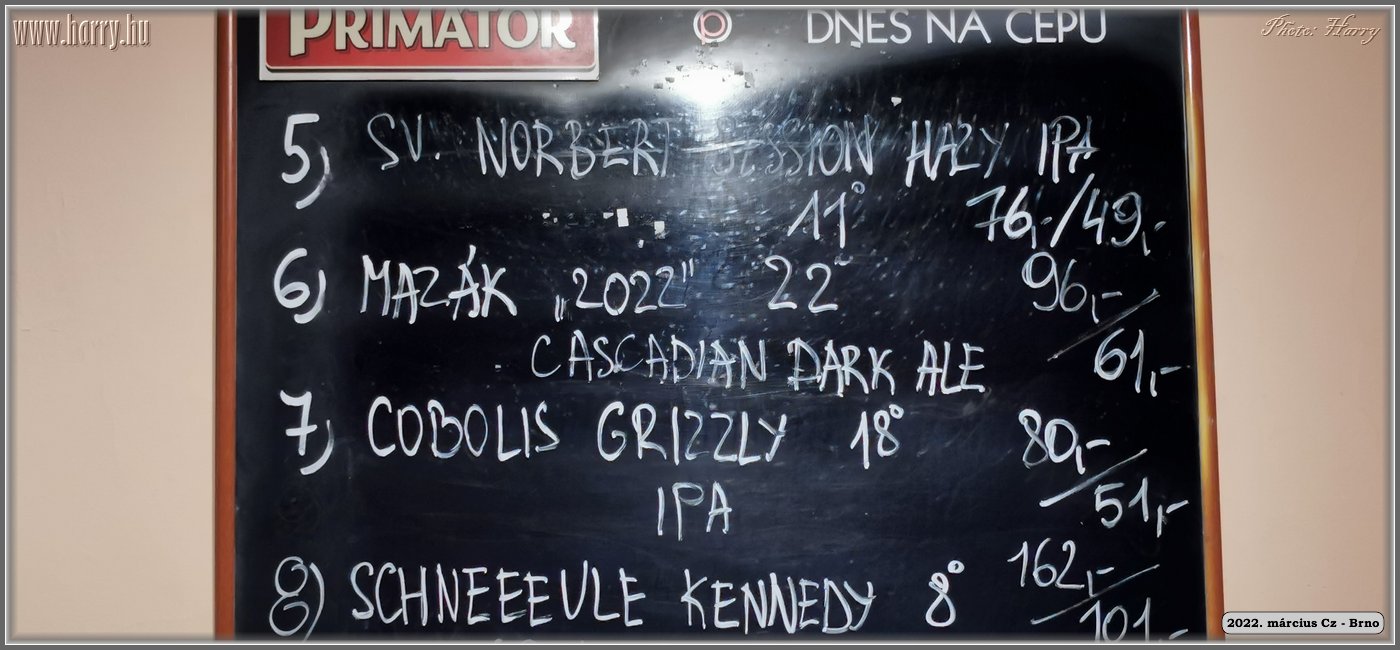 www.harry.hu
Photo: Harry
PRIMATOR
DNES NA ČEPU
5) SV. NORBERT SESSION HAZY IPA
11° 76,-/49,-
6) MAZÁK „2022" 22° 96,-/
CASCADIAN DARK ALE 61,-
7) COBOLIS GRIZZLY 18° 80,-/
IPA 51,-
8) SCHNEEEULE KENNEDY 8° 162,-/
101,-
2022. március Cz - Brno